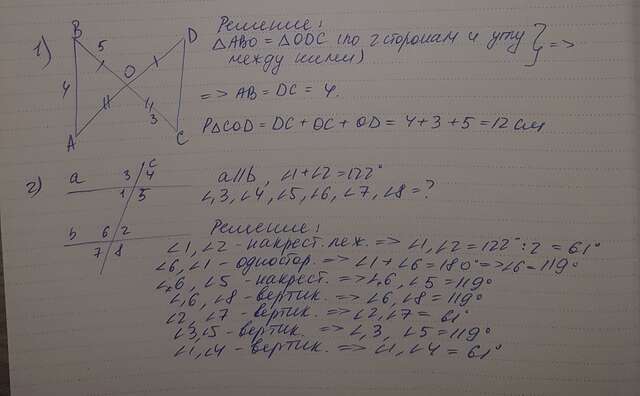 1)
B
5
D
O
4
3
A
C
Решение:
△ABO = △ODC (по 2 сторонам и углу между ними) } =>
=> AB = DC = 4.
P△COD = DC + OC + OD = 4+3+5 = 12 см
2)
a
c
3 4
1 5
b
6 2
7 8
a||b, ∠1+∠2=122°
∠3, ∠4, ∠5, ∠6, ∠7, ∠8=?
Решение:
∠1, ∠2 - накрест. леж. => ∠1, ∠2 = 122° : 2 = 61°
∠6, ∠1 - одностор. => ∠1 + ∠6 = 180° => ∠6 = 119°
∠6, ∠5 - накрест. => ∠6, ∠5 = 119°
∠6, ∠8 - вертик. => ∠6, ∠8 = 119°
∠2, ∠7 - вертик. => ∠2, ∠7 = 61°
∠3, ∠5 - вертик. => ∠3, ∠5 = 119°
∠1, ∠4 - вертик. => ∠1, ∠4 = 61°